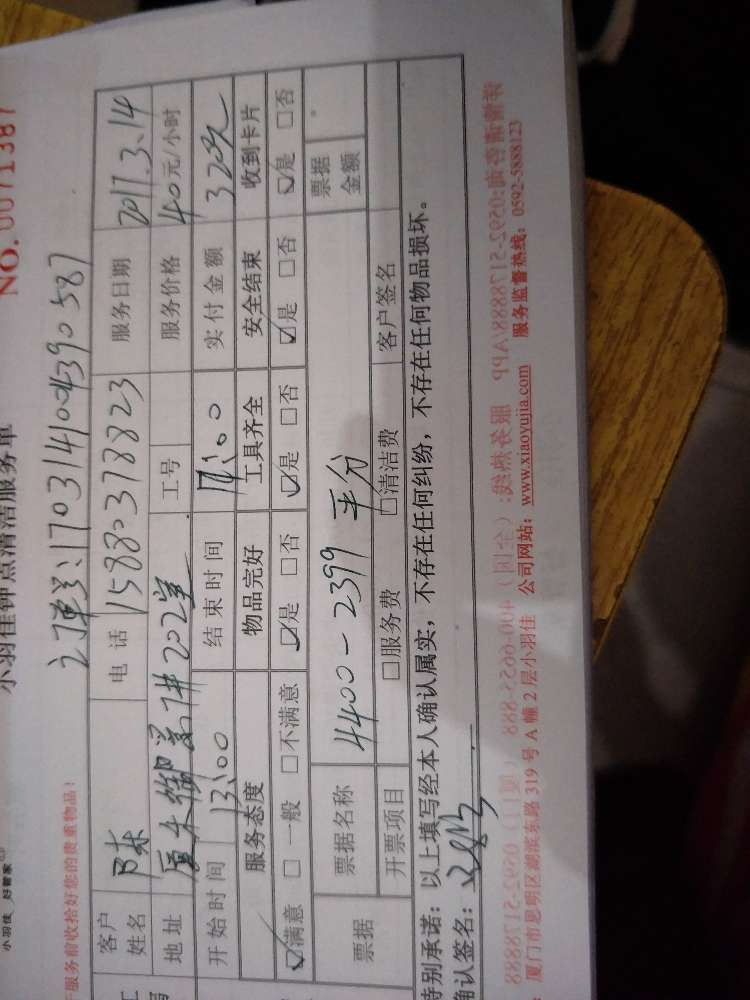 小羽佳 好管家
小羽佳钟点清洁服务单
NO.0071387
服务前收拾好您的贵重物品！
订单号:1703141004390587
客户姓名 陈 电话 15880378823 服务日期 2017.3.14
地址 202室 工号 服务价格 40元/小时
开始时间 13:00 结束时间 实付金额 320元
服务态度 物品完好 工具齐全 安全结束 收到卡片
☑满意 □一般 □不满意 ☑是 □否 ☑是 □否 ☑是 □否 ☑是 □否
票据 票据名称 4400-2399 平分 票据金额
开票项目 □服务费 □清洁费 客户签名
特别承诺：以上填写经本人确认属实，不存在任何纠纷，不存在任何物品损坏。
确认签名：
厦门市思明区湖滨东路 319 号 A 幢 2 层小羽佳 公司网站：www.xiaoyujia.com 服务监督热线：0592-5888123